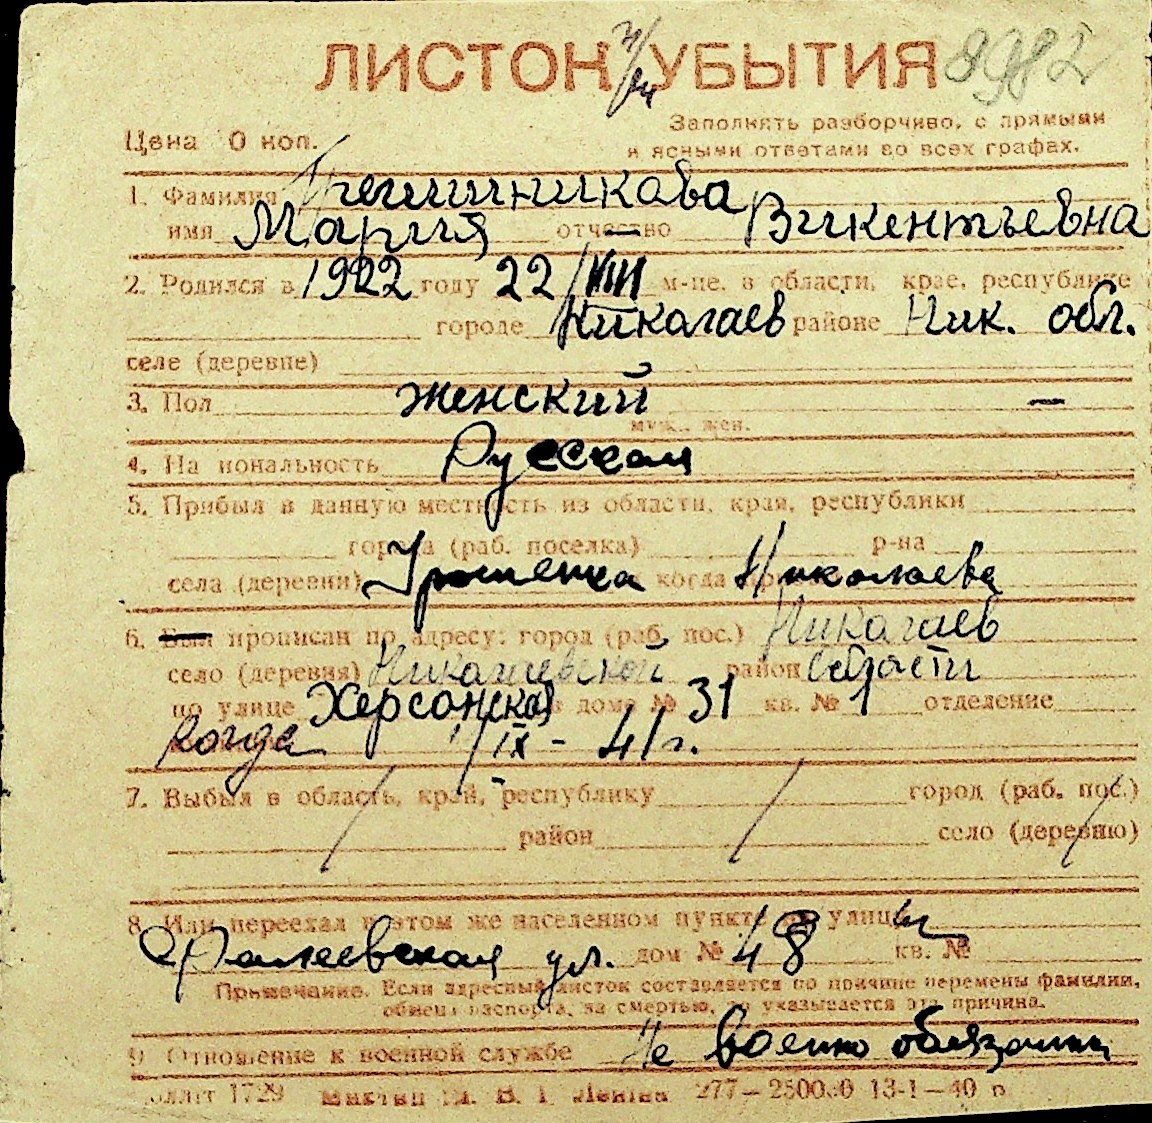 ЛИСТОК УБЫТИЯ 8982
Цена 0 коп. Заполнять разборчиво, с прямыми
и ясными ответами во всех графах.
1. Фамилия
имя Мария отчество Викентьевна
2. Родился в 1922 году 22/VIII м-це, в области, крае, республике
городе Николаев районе Ник. обл.
селе (деревне)
3. Пол женский —
муж., жен.
4. Национальность Русская
5. Прибыл в данную местность из области, края, республики
города (раб. поселка) р-на
села (деревни) когда Николаева
6. Был прописан по адресу: город (раб. пос.) Николаев
село (деревня) Николаевской район области
по улице Херсонской в доме № 31 кв. № 1 отделение
когда 1/IX - 41 г.
7. Выбыл в область, край, республику город (раб. пос.)
район село (деревню)
8. Или переехал в этом же населенном пункте на улицу
Фалеевская ул. дом № 48 кв. №
Примечание. Если адресный листок составляется по причине перемены фамилии,
обмена паспорта, за смертью, то указывается эта причина.
9 Отношение к военной службе Не военно обязанный
1729 277—2500.0 13-1—40 г.